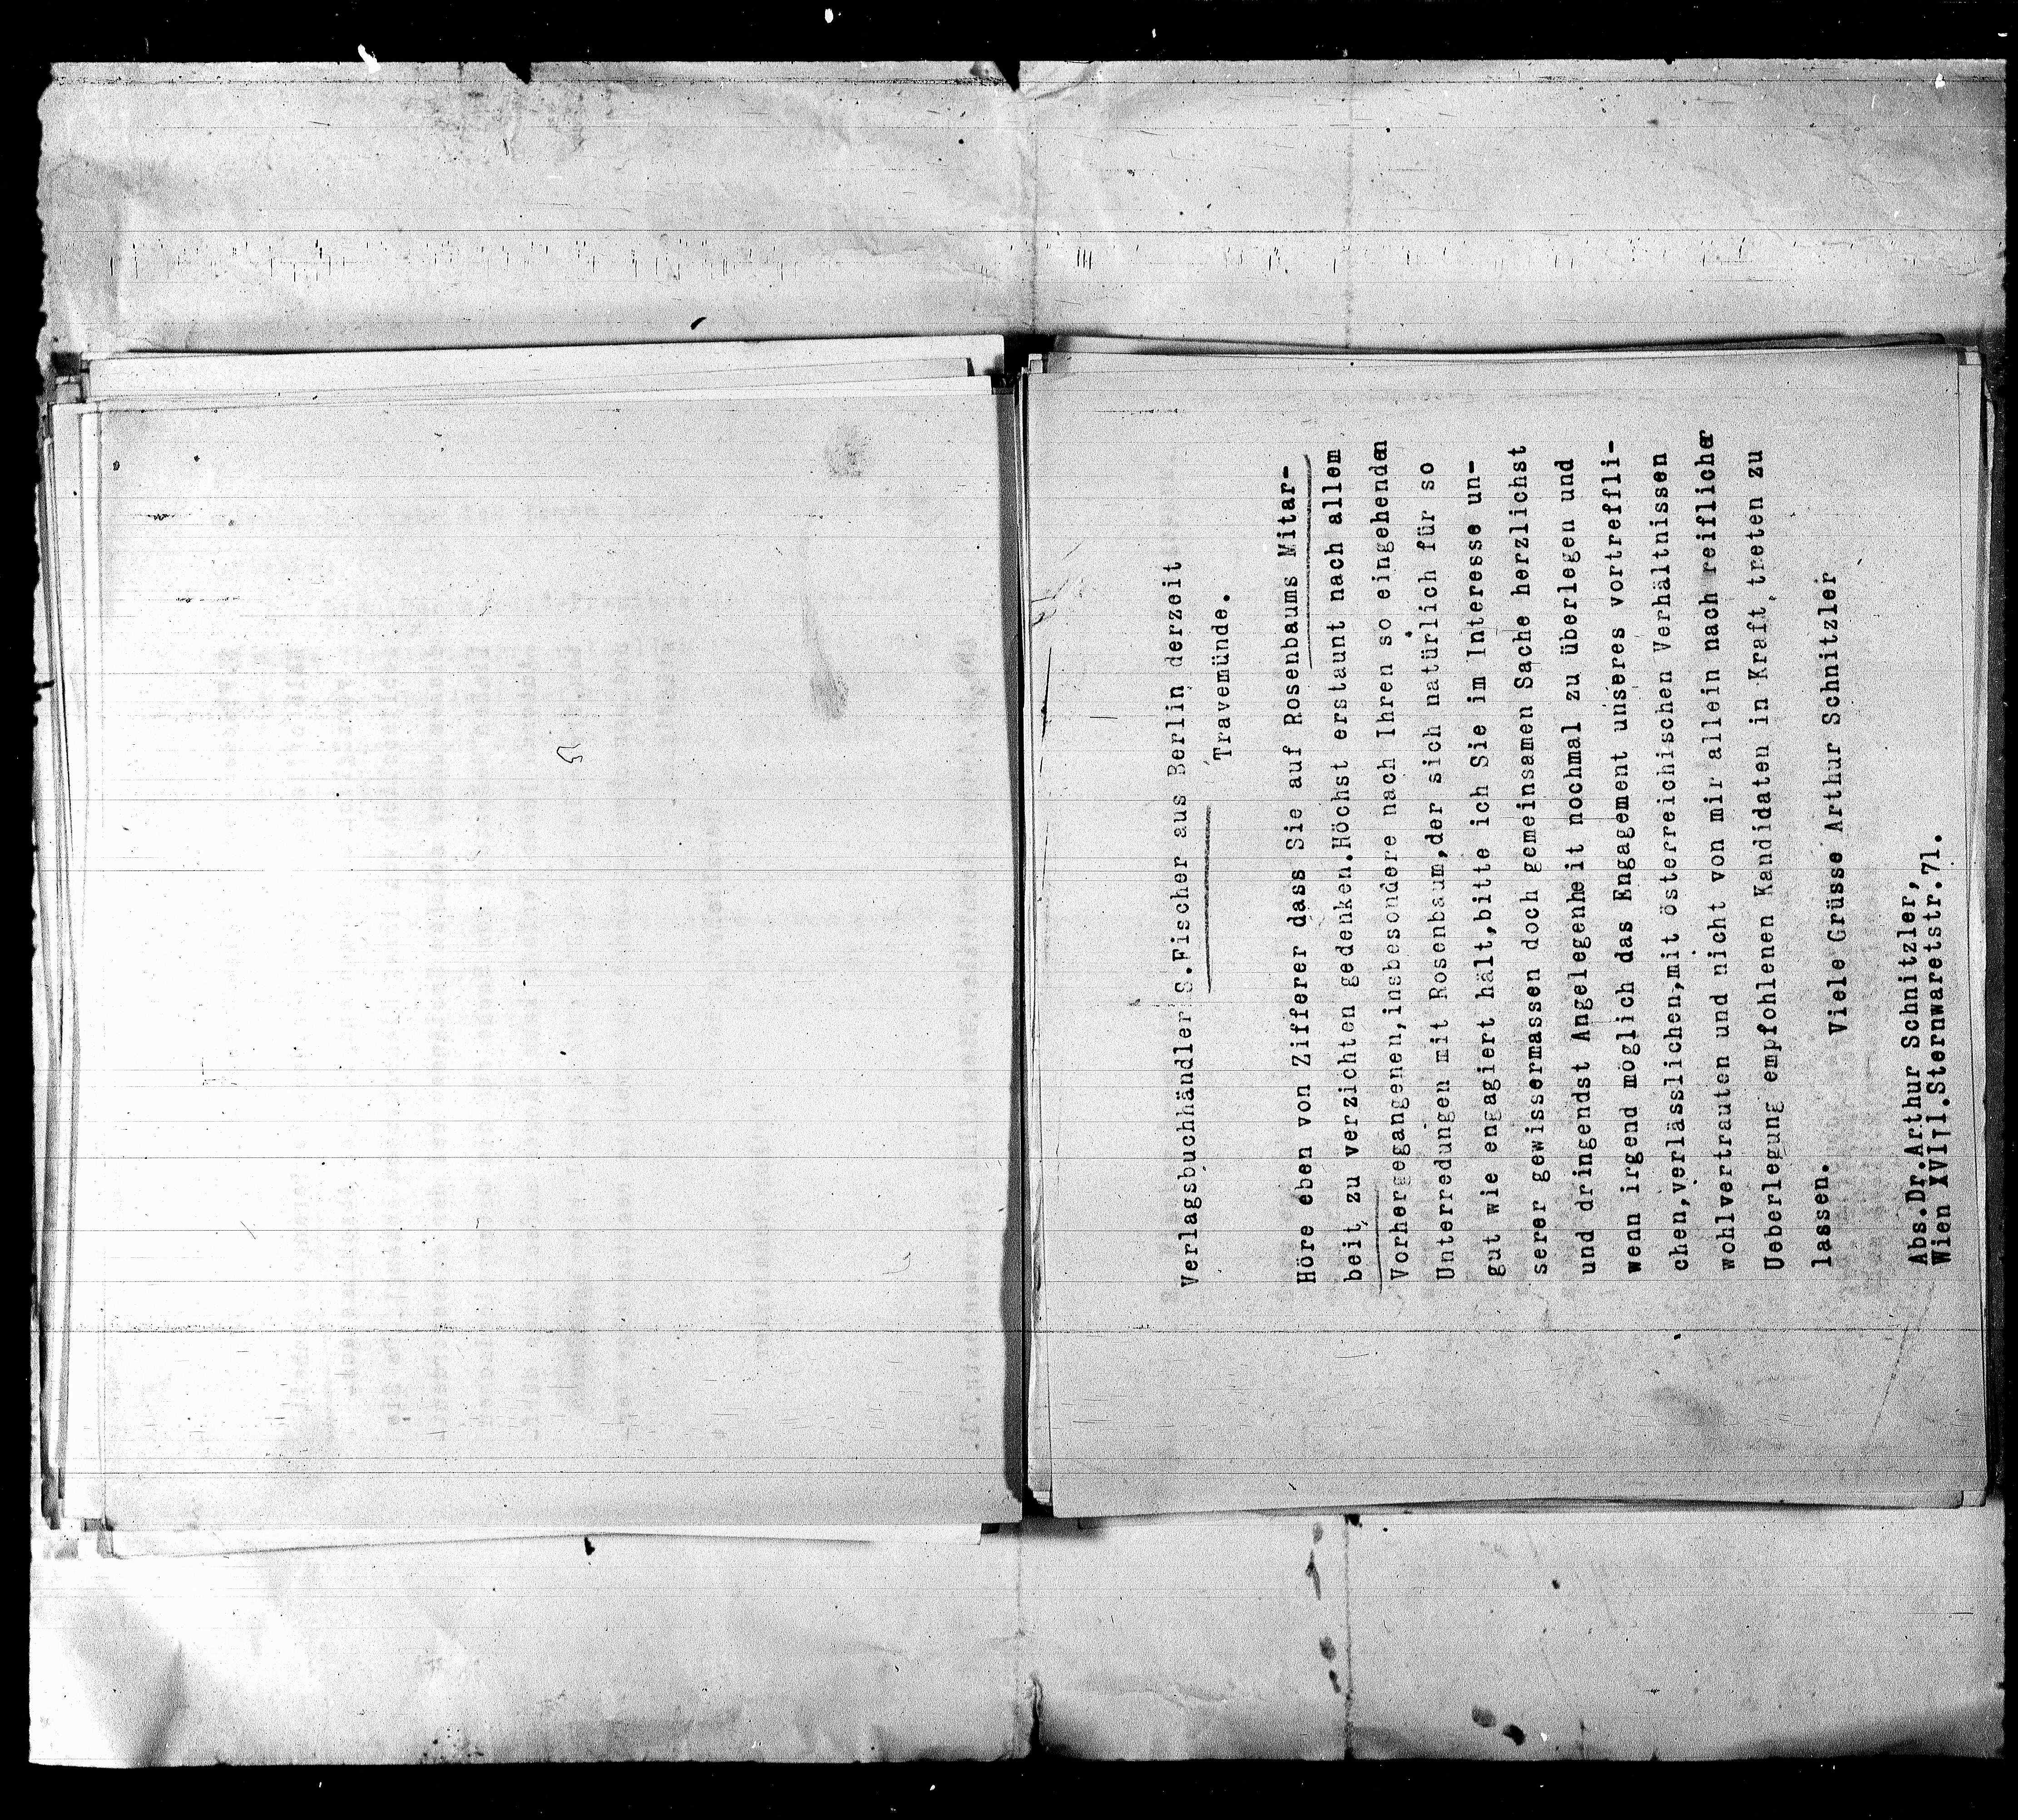 Verlagsbuchhändler S.Fischer aus Berlin derzeit
Travemünde.
Höre eben von Zifferer dass Sie auf Rosenbaums Mitar-
beit zu verzichten gedenken.Höchst erstaunt nach allem
Vorhergegangenen,insbesondere nach Ihren so eingehenden
Unterredungen mit Rosenbaum,der sich natürlich für so
gut wie engagiert hält,bitte ich Sie im Interesse un-
serer gewissermassen doch gemeinsamen Sache herzlichst
und dringendst Angelegenheit nochmal zu überlegen und
wenn irgend möglich das Engagement unseres vortreffli-
chen,verlässlichen,mit österreichischen Verhältnissen
wohlvertrauten und nicht von mir allein nach reiflicher
Ueberlegung empfohlenen Kandidaten in Kraft treten zu
lassen.
Viele Grüsse Arthur Schnitzler
Abs.Dr.Arthur Schnitzler,
Wien XVIII.Sternwaretstr.71.